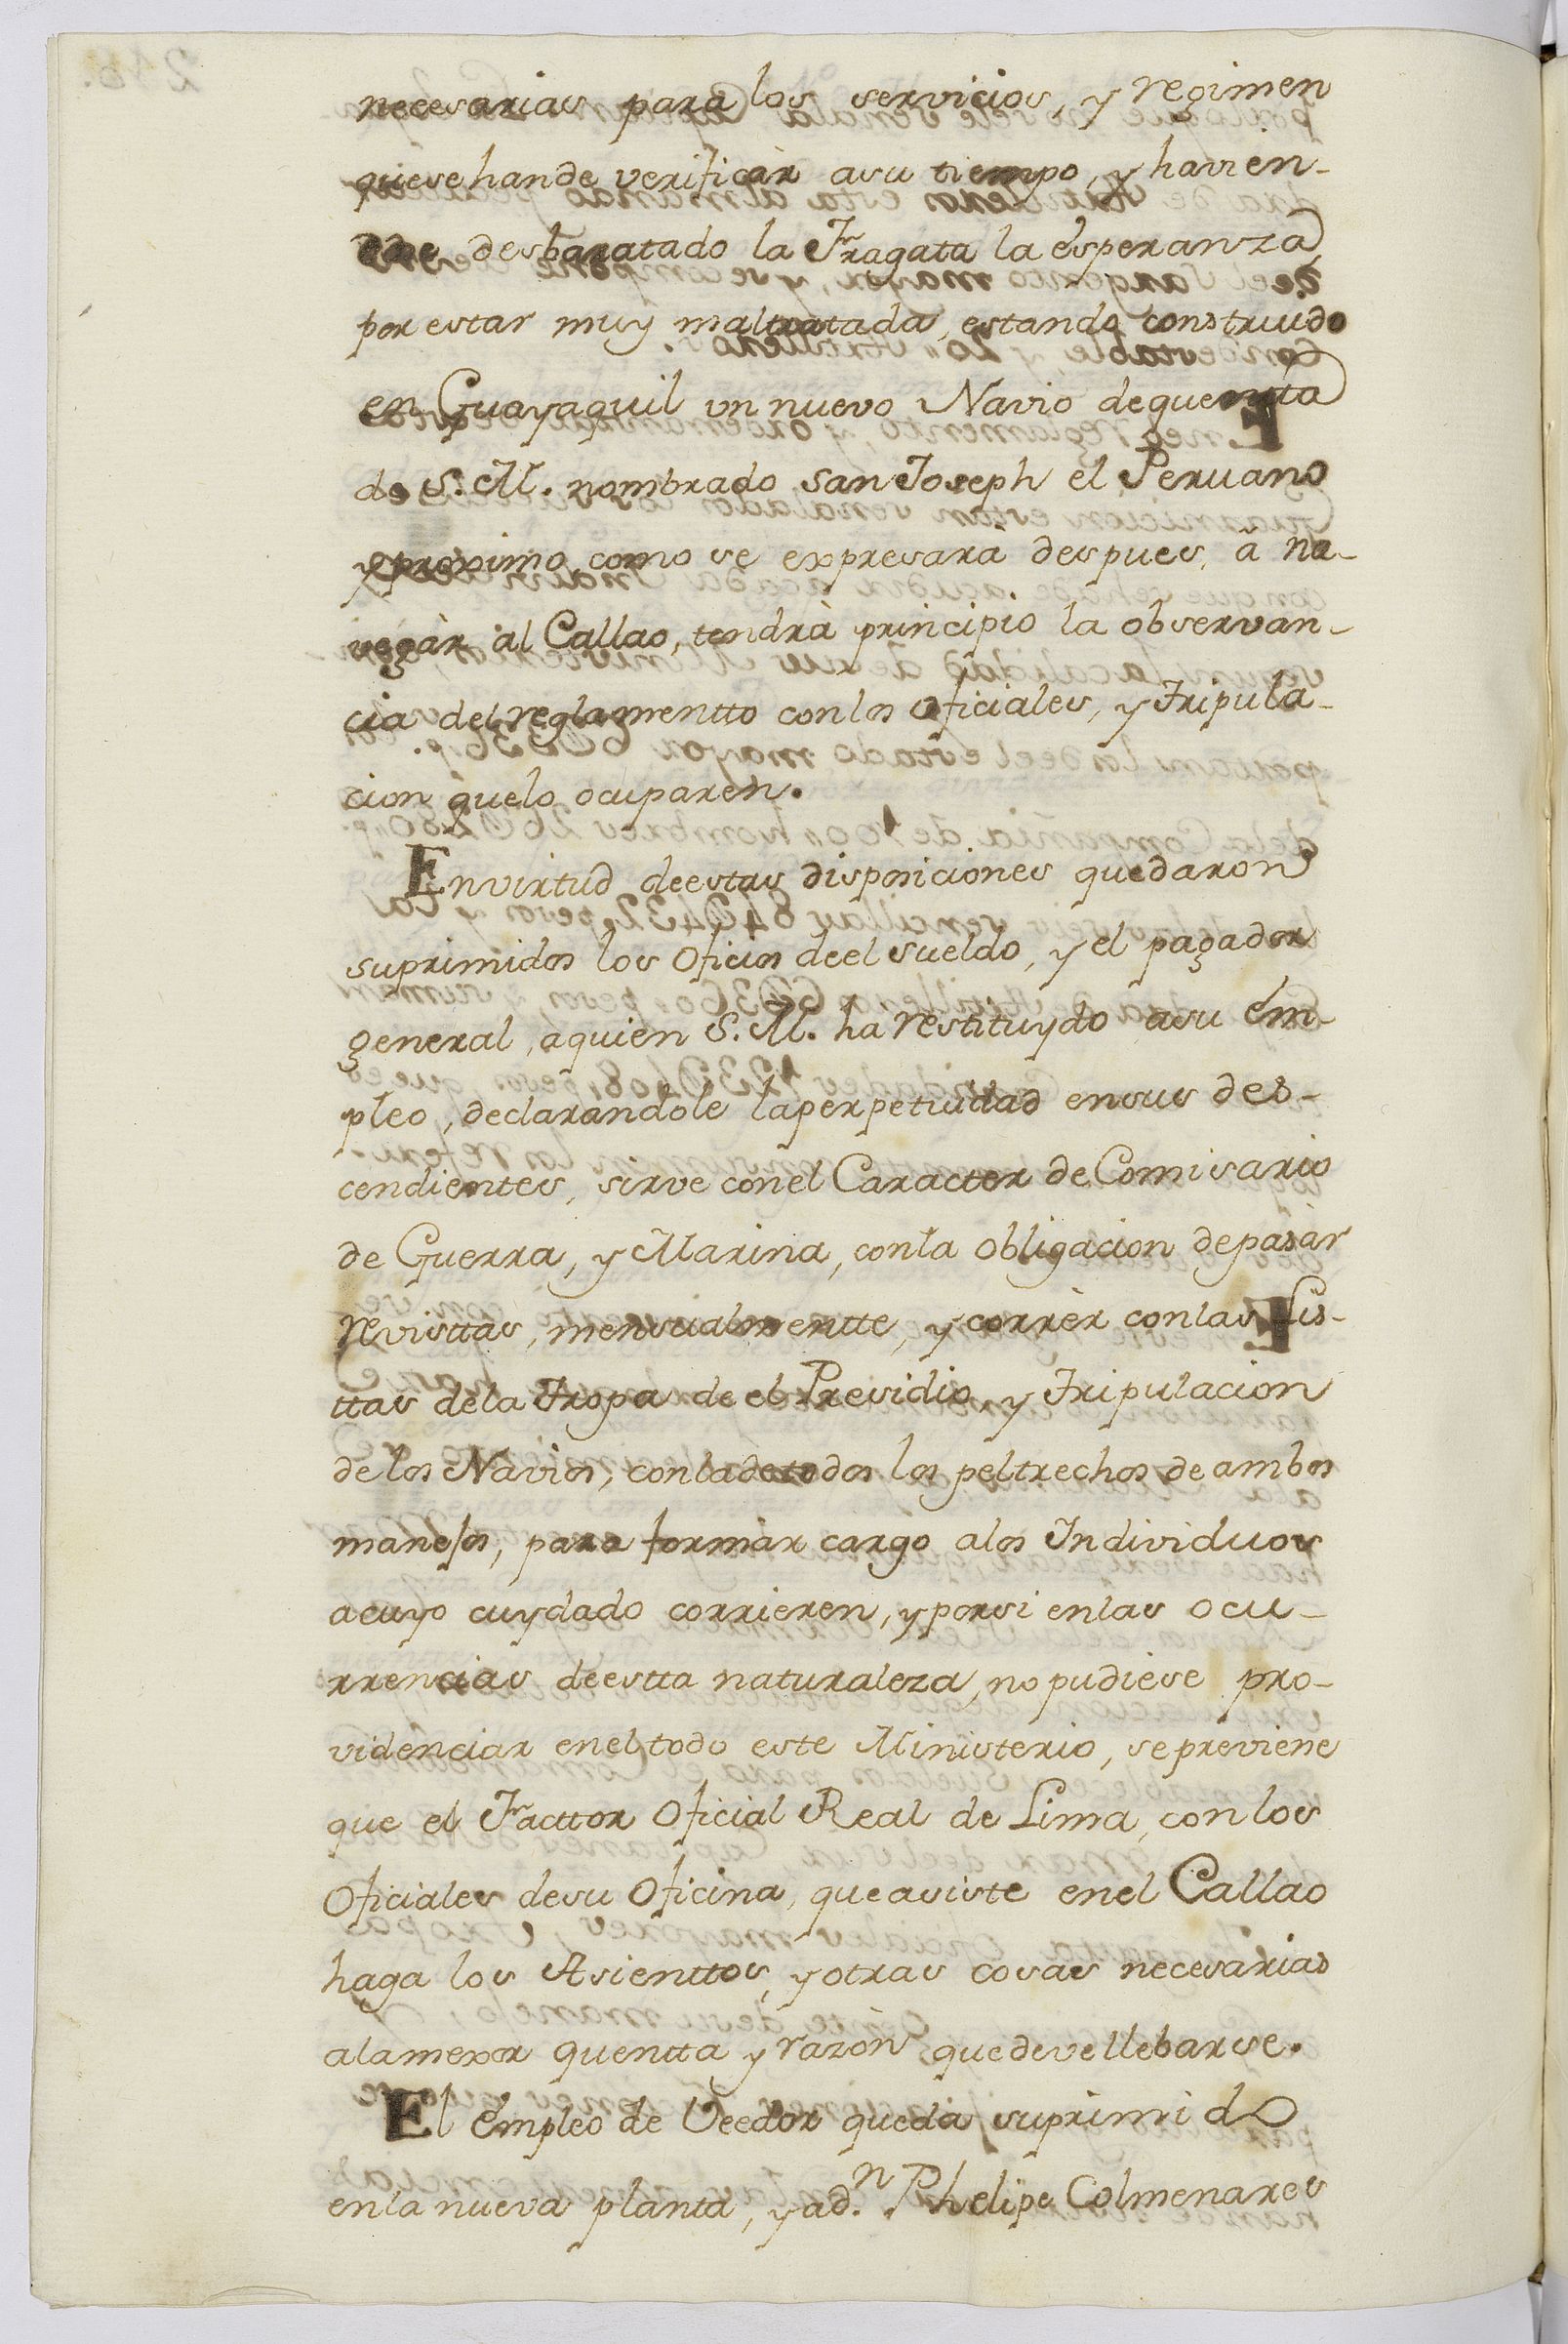 necesarias para los servicios, y regimen
quesehande verificàr asu tiempo, y havien-
dose desbaratado la Fragata la esperanza
por estar muy maltratada, estando construido
en Guayaquil un nuevo Navio dequentta
de S. M. nombrado San Joseph el Peruano
y proximo como se expresarà despues, â na-
vegàr al Callao, tendrà principio la observan-
cia del reglamentto conlos oficiales, y Tripula-
cion quelo ocuparen.
Envirtud deestas disposiciones quedaron
suprimidos los oficios deel sueldo, y el pagador
general, aquien S. M. ha restituydo asu em-
pleo, declarandole laperpetuidad ensus des-
cendientes, sirve conel Caracter de Comisario
de Guerra, y Marina, conla obligacion depasàr
revisttas, mensualmentte, y corrèr conlas Lis-
ttas dela Tropa de el Presidio, y Tripulacion
delos Navios, conladetodos los peltrechos de ambos
manejos, para formàr cargo alos Individuos
acuyo cuydado corrieren, yporsi enlas ocu-
rrencias deestta naturaleza, no pudiese pro-
videnciar eneltodo este Ministerio, sepreviene
que el Facttor Oficial Real de Lima, con los
Oficiales desu Oficina, queasiste enel Callao
haga los Asienttos, yotras cosas necesarias
alamexor quentta y razòn quedevellebarse.
El empleo de Veedor queda suprimido
enla nueva planta, yad.n Phelipe Colmenares